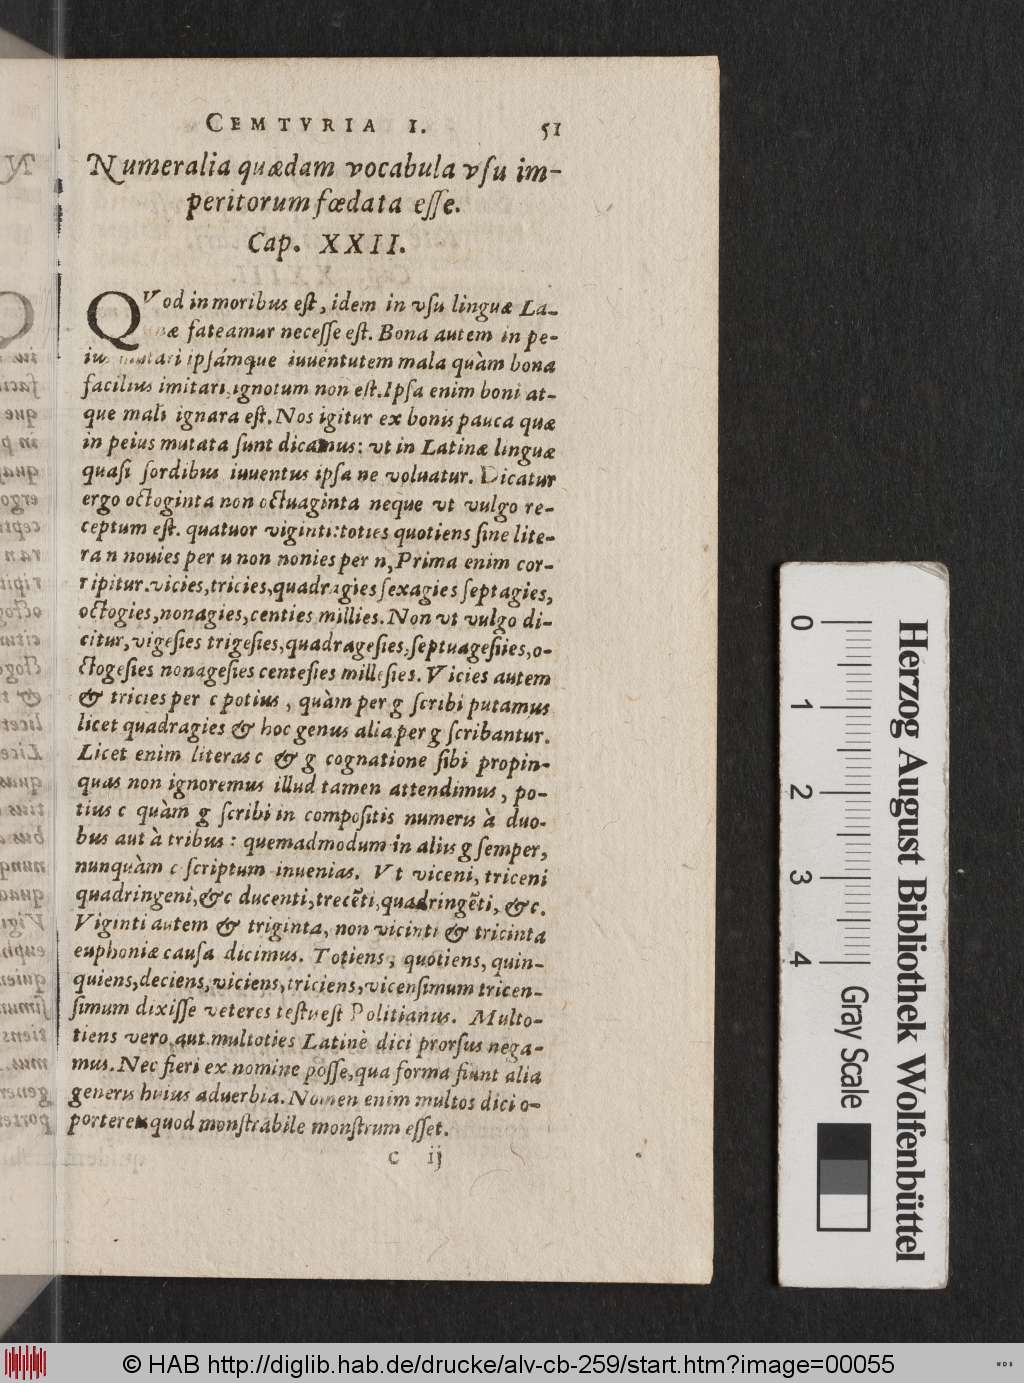 CEMTVRIA I. 51
Numeralia quædam vocabula vſu im-
peritorum fœdata eſſe.
Cap. XXII.
QVod in moribus eſt, idem in vſu linguæ La-
næ fateamur neceſſe eſt. Bona autem in pe-
ius mutari ipſámque iuuentutem mala quàm bona
facilius imitari, ignotum non eſt. Ipſa enim boni at-
que mali ignara eſt. Nos igitur ex bonis pauca quæ
in peius mutata ſunt dicamus: vt in Latinæ linguæ
quaſi ſordibus iuuentus ipſa ne voluatur. Dicatur
ergo octoginta non octuaginta neque vt vulgo re-
ceptum eſt. quatuor viginti: toties quotiens ſine lite-
ra n nouies per u non nonies per n, Prima enim cor-
ripitur. vicies, tricies, quadragies ſexagies ſeptagies,
octogies, nonagies, centies millies. Non vt vulgo di-
citur, vigeſies trigeſies, quadrageſies, ſeptuageſiies, o-
ctogeſies nonageſies centeſies milleſies. Vicies autem
& tricies per c potius, quàm per g ſcribi putamus
licet quadragies & hoc genus alia per g ſcribantur.
Licet enim literas c & g cognatione ſibi propin-
quas non ignoremus illud tamen attendimus, po-
tius c quàm g ſcribi in compoſitis numeris à duo-
bus aut à tribus: quemadmodum in aliis g ſemper,
nunquàm c ſcriptum inuenias. Vt viceni, triceni
quadringeni, &c ducenti, trecẽti, quadringẽti, &c.
Viginti autem & triginta, non vicinti & tricinta
euphoniæ cauſa dicimus. Totiens, quotiens, quin-
quiens, deciens, viciens, triciens, vicenſimum tricen-
ſimum dixiſſe veteres teſtis eſt Politianus. Multo-
tiens vero, aut multoties Latinè dici prorſus nega-
mus. Nec fieri ex nomine poſſe, qua forma fiunt alia
generis huius aduerbia. Nomen enim multos dici o-
porteret quod monſtrabile monſtrum eſſet.
c ij
Herzog August Bibliothek Wolfenbüttel
0 1 2 3 4 Gray Scale
© HAB http://diglib.hab.de/drucke/alv-cb-259/start.htm?image=00055